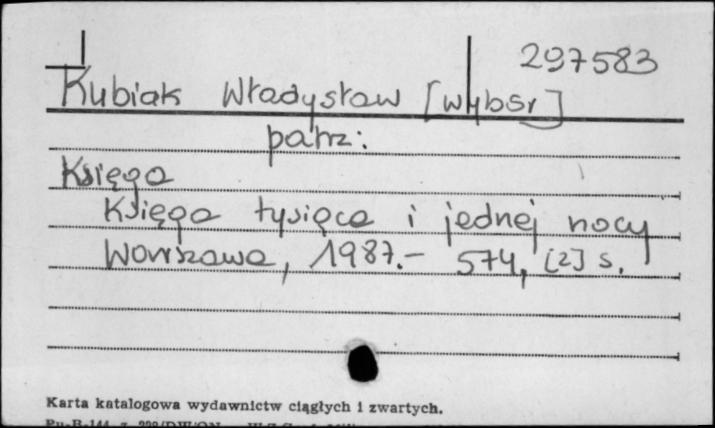 297583
Kubiak Władysław [wybór]
patrz:
Księga
Księga tysiąca i jednej nocy
Warszawa, 1987.– 574, [2] s.
Karta katalogowa wydawnictw ciągłych i zwartych.
Pu-B-144